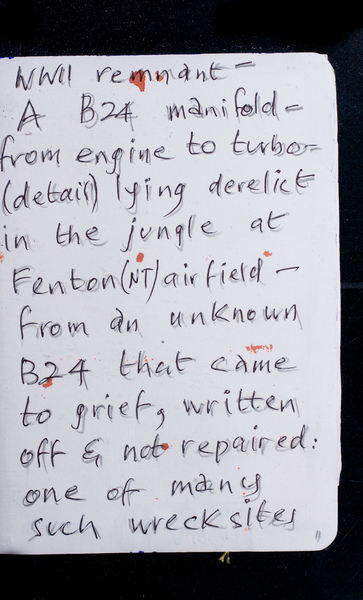 WWII remnant -
A B24 manifold -
from engine to turbo-
(detail) lying derelict
in the jungle at
Fenton (NT) airfield -
from an unknown
B24 that came
to grief, written
off & not repaired:
one of many
such wreck sites